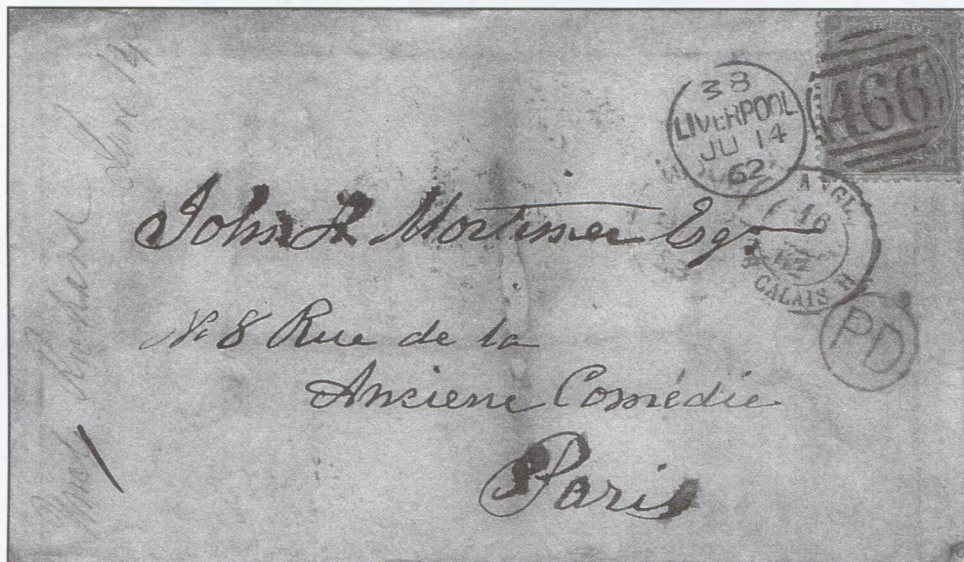 38
LIVERPOOL
JU 14
62
466
ANGL.
16
CALAIS
PD
John Mortimer Esq
No 8 Rue de la
Anciene Comédie
Paris